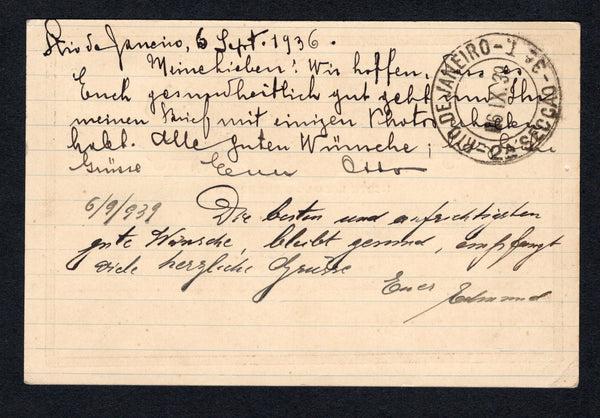 Rio de Janeiro, 6 Sept. 1936.
Meine Lieben! Wir hoffen, es
Euch gesundheitlich gut geht und Ihr
meinen Brief mit einigen Photos
habt. Alle guten Wünsche,
Grüsse Euer Otto
6/9/939 Die besten und aufrichtigsten
gute Wünsche, bleibt gesund, empfangt
viele herzliche Grüsse
Euer Edmund
RIO DE JANEIRO
2A SECÇÃO